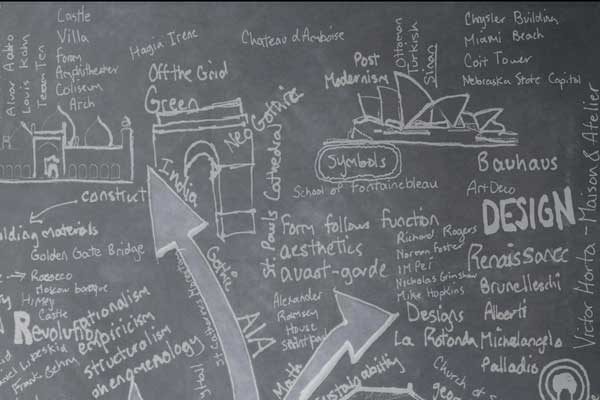 Castle
Villa
Forum
Amphitheater
Coliseum
Arch
Alvar Aalto
Louis Kahn
Team Ten
Hagia Irene
Chateau d'Amboise
Off the Grid
Green
Neo Gothic
Post
Modernism
Ottoman
Turkish
Sinan
Chrysler Building
Miami Beach
Coit Tower
Nebraska State Capital
Symbols
School of Fontainebleau
Bauhaus
Art Deco
DESIGN
Victor Horta - Maison & Atelier
India
St. Pauls Cathedral
construct
building materials
Golden Gate Bridge
Rococco
Moscow baroque
Castle
Revolution
rationalism
empiricism
structuralism
phenomenology
Frank Gehry
Gothic
AIA
Form follows function
aesthetics
avant-garde
Richard Rogers
Norman Foster
IM Pei
Nicholas Grimshaw
Mike Hopkins
Alexander
Ramsey
House
Designs
La Rotonda
Renaissance
Brunelleschi
Alberti
Michelangelo
Palladio
Math
Sustainability
Church of